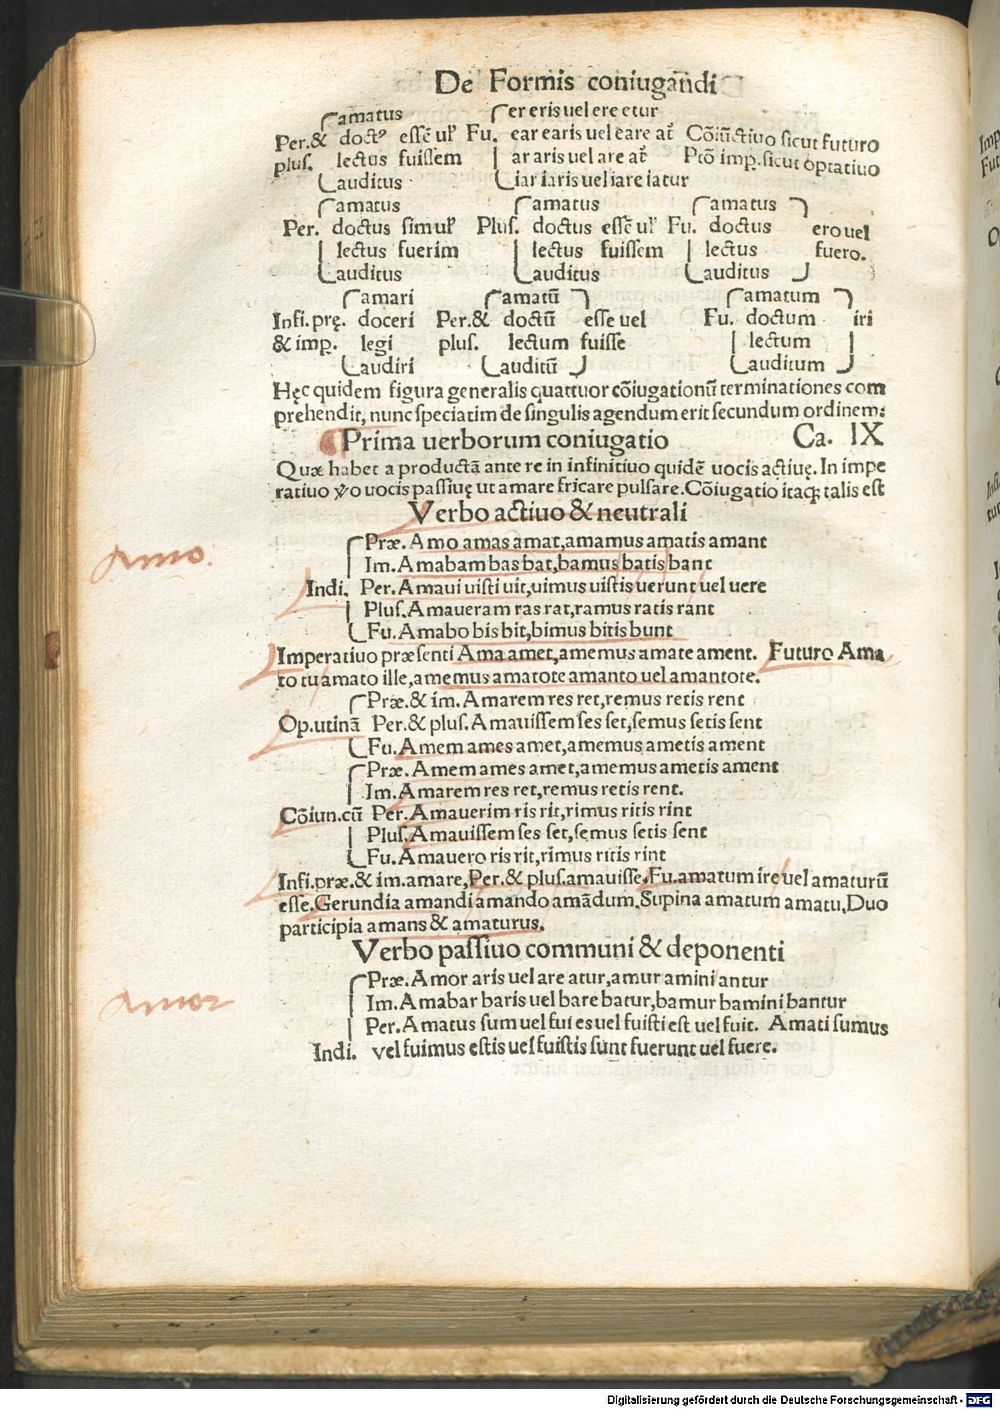 De Formis coniugãdi
amatus er eris uel ere etur
Per.& doctꝰ essẽ ul' Fu. ear earis uel eare at̃ Cõiũctiuo sicut futuro
plus. lectus fuissem ar aris uel are at̃ Ptõ imp. sicut optatiuo
auditus iar iaris uel iare iatur
amatus amatus amatus
Per. doctus sim ul' Plus. doctus essẽ ul' Fu. doctus ero uel
lectus fuerim lectus fuissem lectus fuero.
auditus auditus auditus
amari amatũ amatum
Infi. prę. doceri Per.& doctũ esse uel Fu. doctum iri
& imp. legi plus. lectum fuisse lectum
audiri auditũ auditum
Hęc quidem figura generalis quattuor cõiugationũ terminationes com
prehendit, nunc speciatim de singulis agendum erit secundum ordinem:
Prima uerborum coniugatio Ca. IX
Quæ habet a productã ante re in infinitiuo quidẽ uocis actiuę. In impe
ratiuo ꝟo uocis passiuę ut amare fricare pulsare. Cõiugatio itaqꝫ talis est
Verbo actiuo & neutrali
Præ. Amo amas amat, amamus amatis amant
Amo.
Im. Amabam bas bat, bamus batis bant
Indi. Per. Amaui uisti uit, uimus uistis uerunt uel uere
Plus. Amaueram ras rat, ramus ratis rant
Fu. Amabo bis bit, bimus bitis bunt
Imperatiuo præsenti Ama amet, amemus amate ament. Futuro Ama
to tu amato ille, amemus amatote amanto uel amantote.
Præ.& im. Amarem res ret, remus retis rent
Op. utinã Per.& plus. Amauissem ses set, semus setis sent
Fu. Amem ames amet, amemus ametis ament
Præ. Amem ames amet, amemus ametis ament
Im. Amarem res ret, remus retis rent.
Cõiun. cũ Per. Amauerim ris rit, rimus ritis rint
Plus. Amauissem ses set, semus setis sent
Fu. Amauero ris rit, rimus ritis rint
Infi. præ.& im. amare, Per.& plus. amauisse. Fu. amatum ire uel amaturũ
esse. Gerundia amandi amando amãdum. Supina amatum amatu. Duo
participia amans & amaturus.
Verbo passiuo communi & deponenti
Præ. Amor aris uel are atur, amur amini antur
Amor
Im. Amabar baris uel bare batur, bamur bamini bantur
Per. Amatus sum uel fui es uel fuisti est uel fuit. Amati sumus
Indi. vel fuimus estis uel fuistis sunt fuerunt uel fuere.
Digitalisierung gefördert durch die Deutsche Forschungsgemeinschaft - DFG